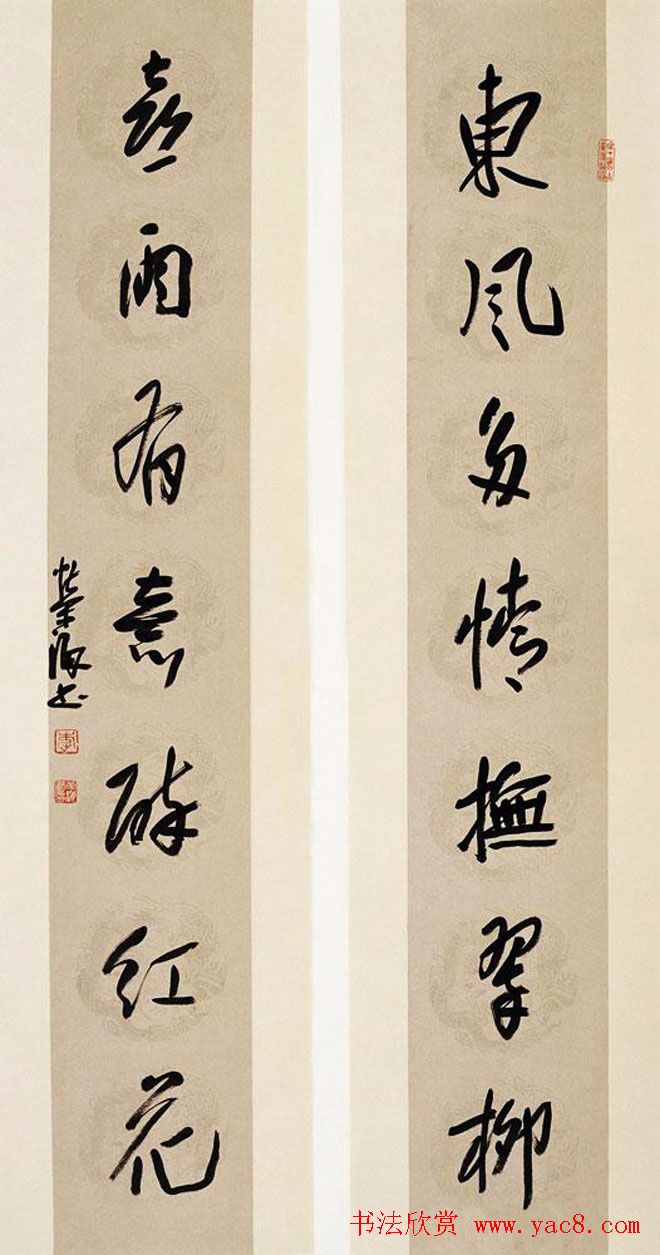 東风多情撫翠柳
喜雨有意醉红花
书
书法欣赏 www.yac8.com